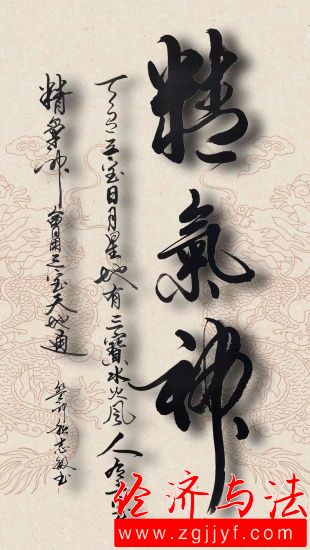 精氣神
天有三宝日月星地有三寶水火風人有三
精氣神善用三宝天地通
癸卯 志敏书
经济与法
www.zgjjyf.com